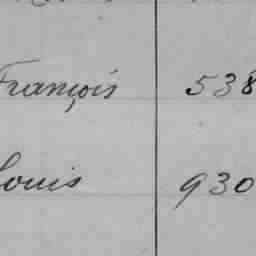 François 538
Louis 930